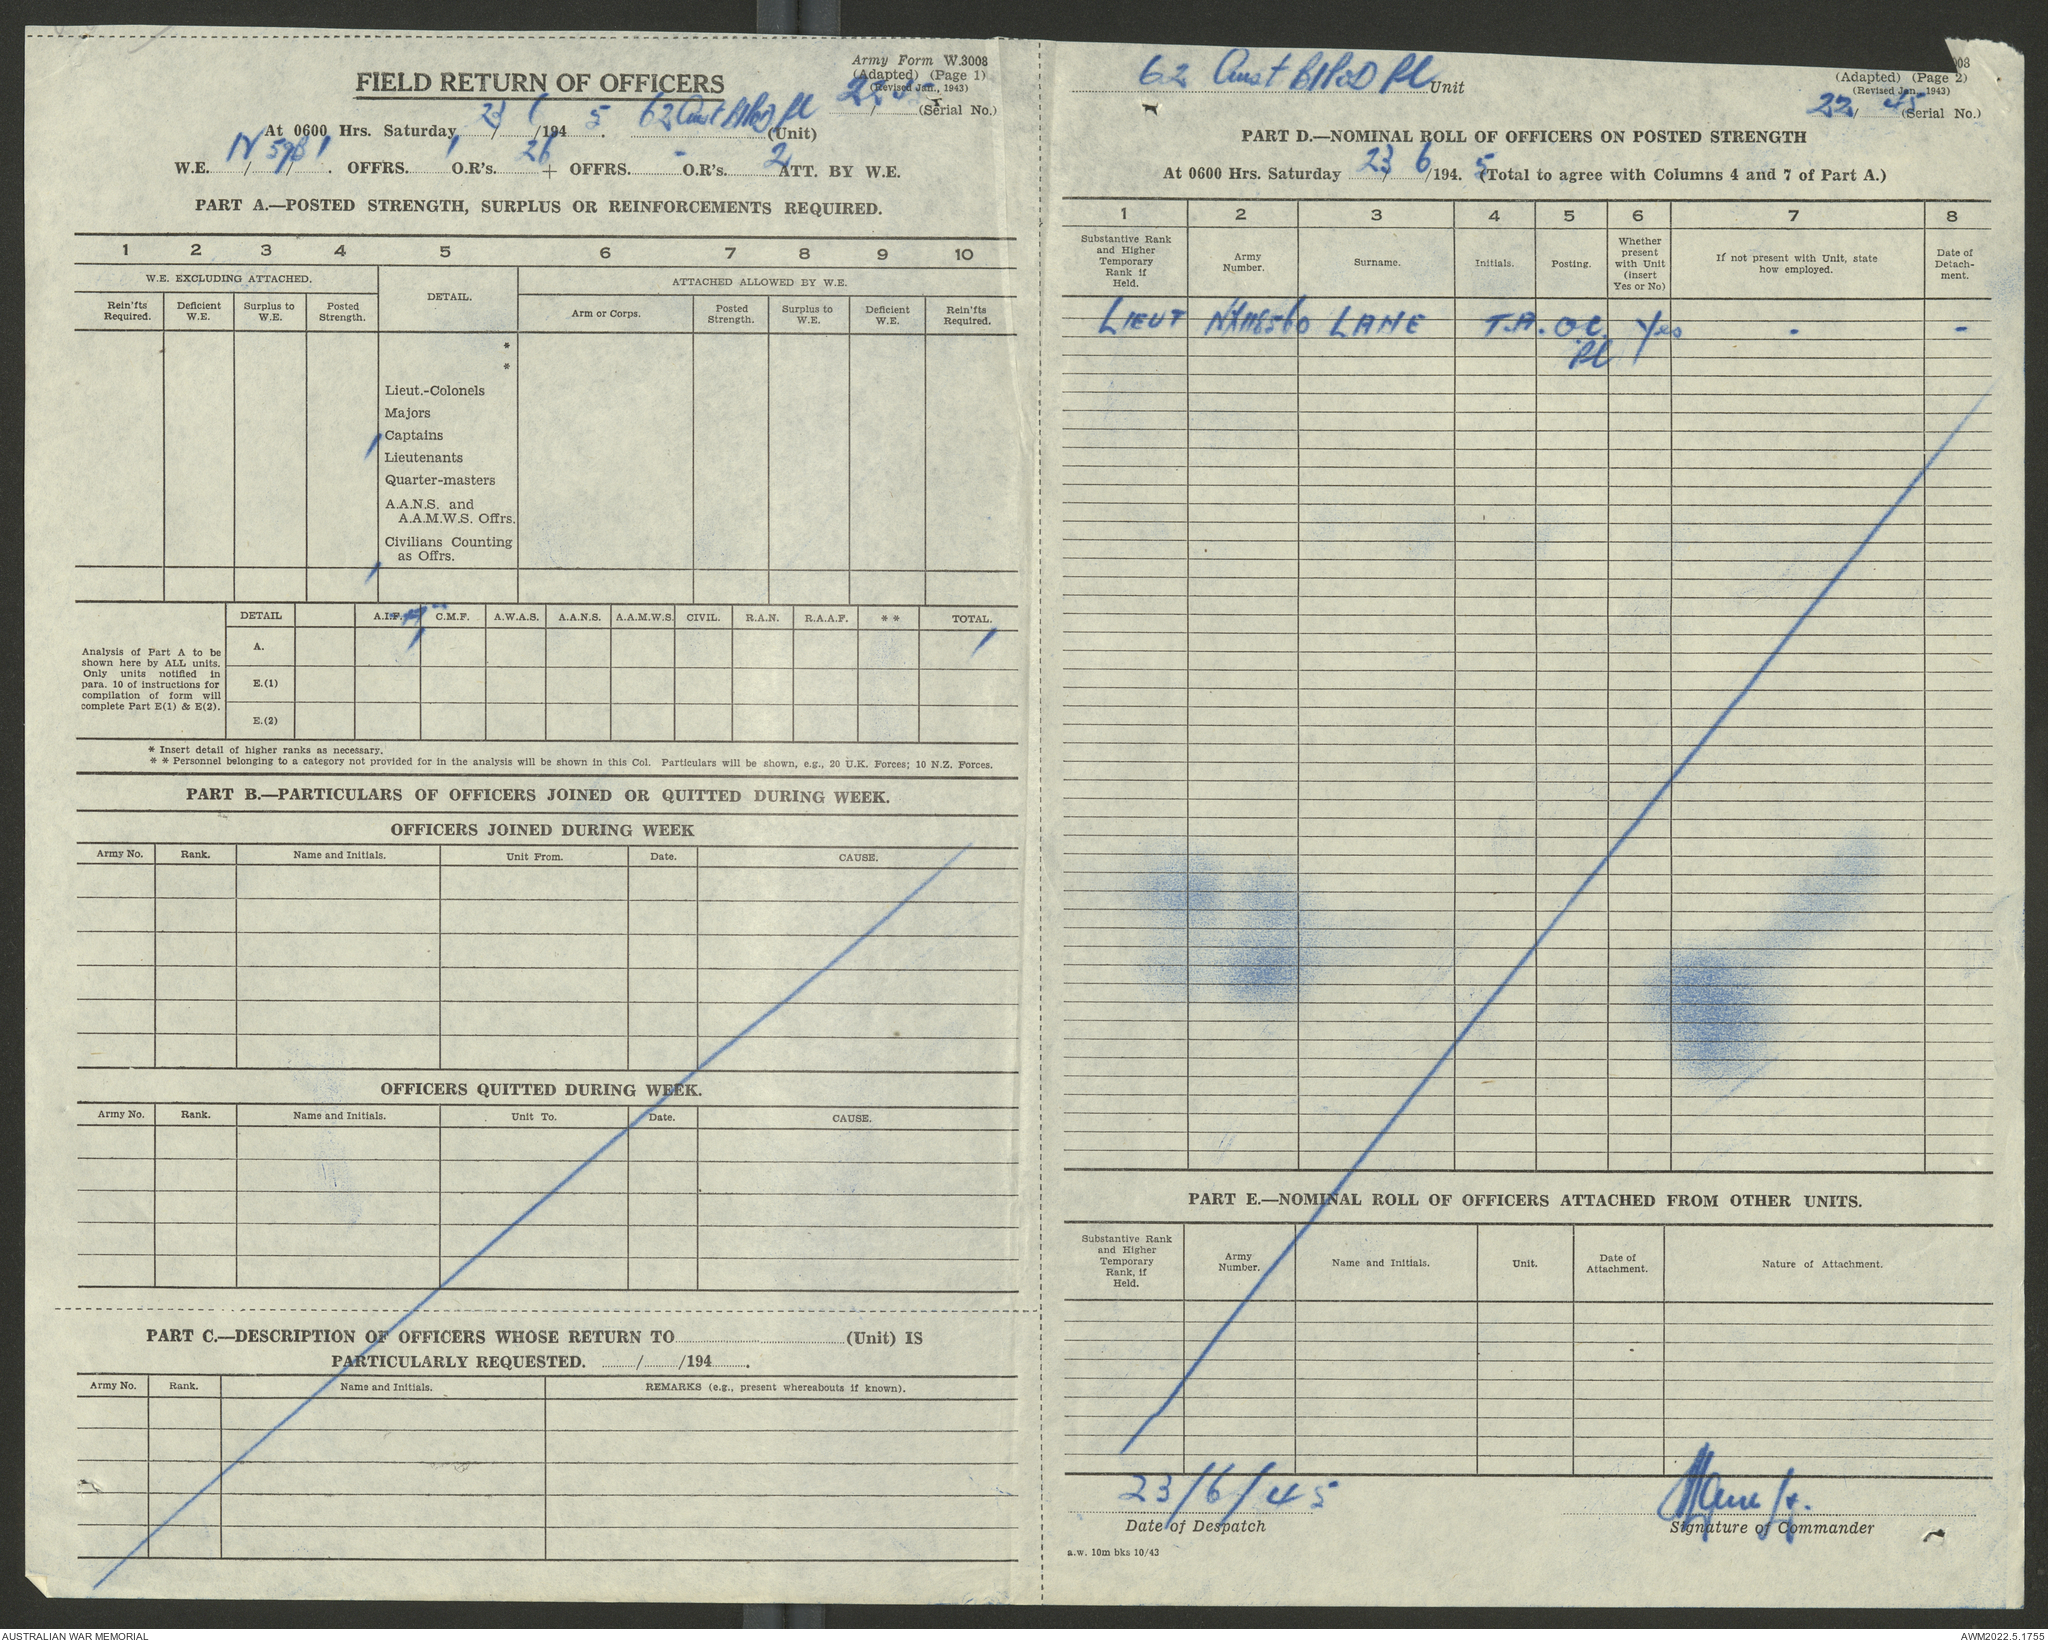 Army Form W.3008
(Adapted) (Page 1)
(Revised Jan., 1943)
FIELD RETURN OF OFFICERS
22/45 (Serial No.)
At 0600 Hrs. Saturday 23/6/1945. 62 Aust BIPOD Pl (Unit)
W.E. IV/598/1. OFFRS. 1 O.R's. 26 + OFFRS. - O.R's. 2 ATT. BY W.E.
PART A.—POSTED STRENGTH, SURPLUS OR REINFORCEMENTS REQUIRED.
1 2 3 4 5 6 7 8 9 10
W.E. EXCLUDING ATTACHED. DETAIL. ATTACHED ALLOWED BY W.E.
Rein'fts Required. Deficient W.E. Surplus to W.E. Posted Strength. Arm or Corps. Posted Strength. Surplus to W.E. Deficient W.E. Rein'fts Required.
*
*
Lieut.-Colonels
Majors
Captains
1 Lieutenants
Quarter-masters
A.A.N.S. and
A.A.M.W.S. Offrs.
Civilians Counting
as Offrs.
1
DETAIL A.I.F. C.M.F. A.W.A.S. A.A.N.S. A.A.M.W.S. CIVIL. R.A.N. R.A.A.F. * * TOTAL.
A. 1 1
E.(1)
E.(2)
Analysis of Part A to be
shown here by ALL units.
Only units notified in
para. 10 of instructions for
compilation of form will
complete Part E(1) & E(2).
* Insert detail of higher ranks as necessary.
* * Personnel belonging to a category not provided for in the analysis will be shown in this Col. Particulars will be shown, e.g., 20 U.K. Forces; 10 N.Z. Forces.
PART B.—PARTICULARS OF OFFICERS JOINED OR QUITTED DURING WEEK.
OFFICERS JOINED DURING WEEK
Army No. Rank. Name and Initials. Unit From. Date. CAUSE.
OFFICERS QUITTED DURING WEEK.
Army No. Rank. Name and Initials. Unit To. Date. CAUSE.
PART C.—DESCRIPTION OF OFFICERS WHOSE RETURN TO (Unit) IS
PARTICULARLY REQUESTED. / /194 .
Army No. Rank. Name and Initials. REMARKS (e.g., present whereabouts if known).
62 Aust BIPOD Pl Unit
008
(Adapted) (Page 2)
(Revised Jan., 1943)
22/45 (Serial No.)
PART D.—NOMINAL ROLL OF OFFICERS ON POSTED STRENGTH
At 0600 Hrs. Saturday 23/6/1945. (Total to agree with Columns 4 and 7 of Part A.)
1 2 3 4 5 6 7 8
Substantive Rank and Higher Temporary Rank if Held. Army Number. Surname. Initials. Posting. Whether present with Unit (insert Yes or No) If not present with Unit, state how employed. Date of Detachment.
LIEUT NX116560 LANE T.A. O.C. Yes - -
Pl
PART E.—NOMINAL ROLL OF OFFICERS ATTACHED FROM OTHER UNITS.
Substantive Rank and Higher Temporary Rank, if Held. Army Number. Name and Initials. Unit. Date of Attachment. Nature of Attachment.
23/6/45
Date of Despatch
Lane Lt.
Signature of Commander
a.w. 10m bks 10/43
AUSTRALIAN WAR MEMORIAL
AWM2022.5.1755